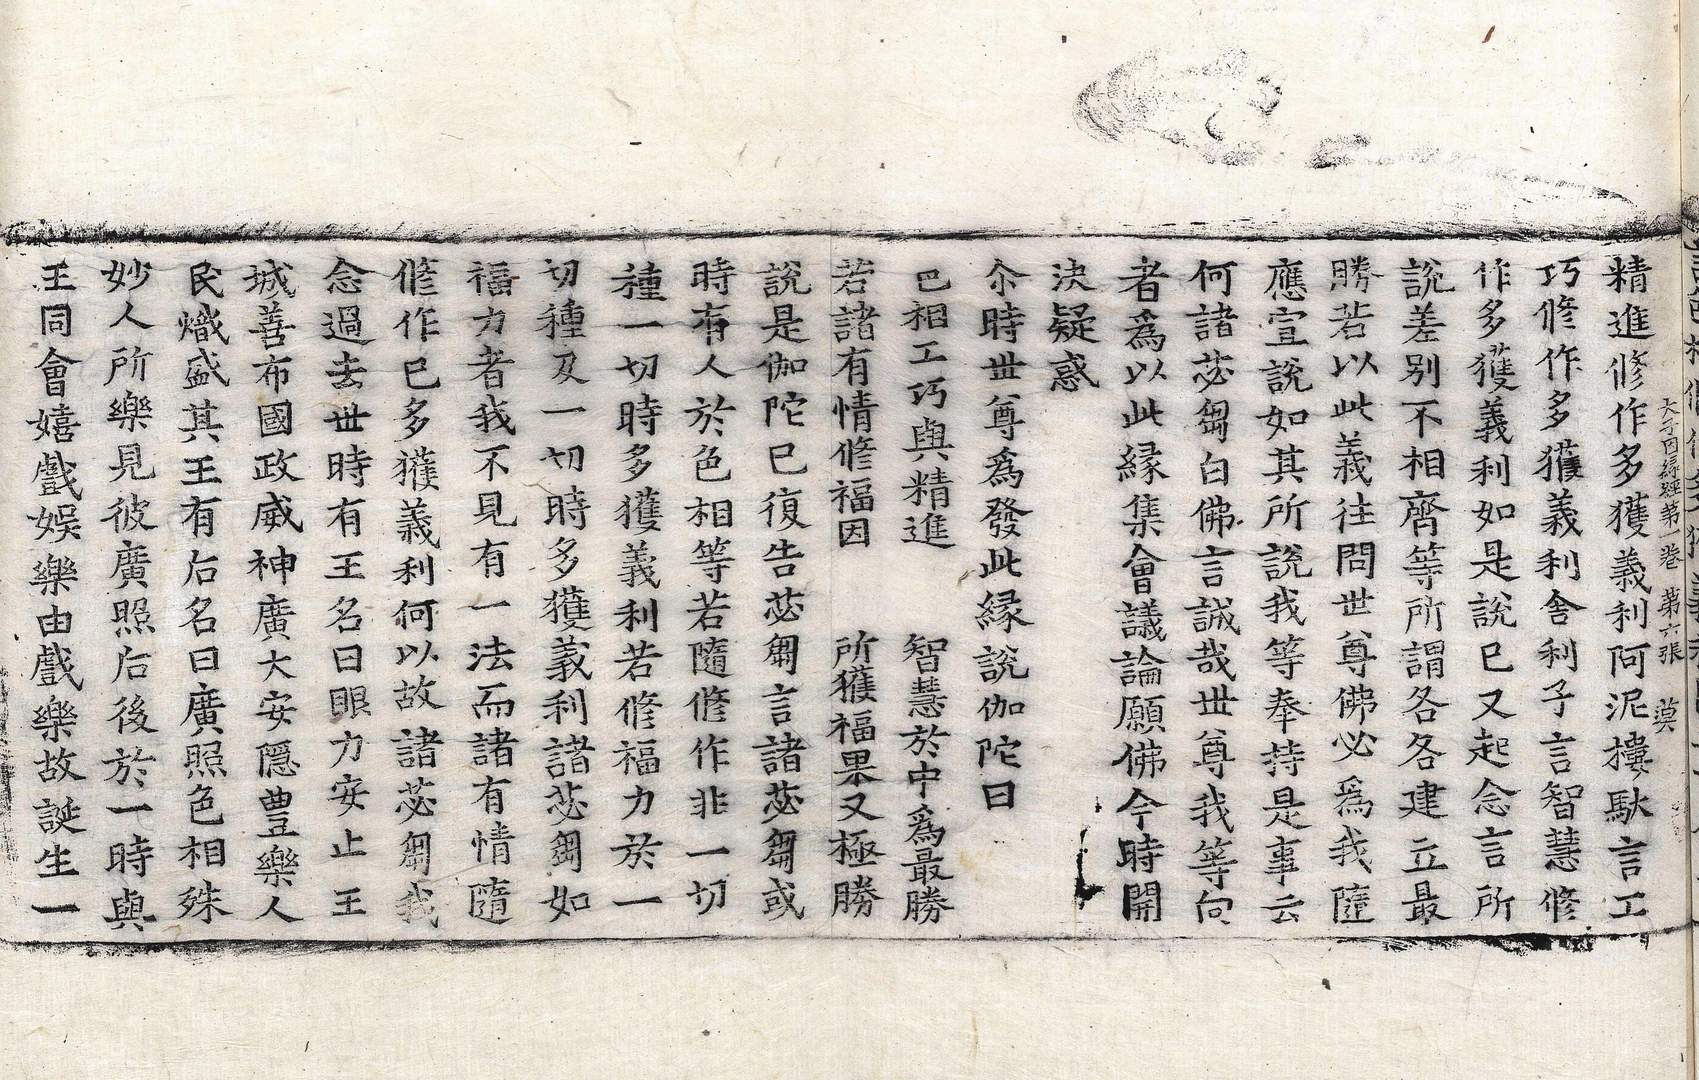 大子因緣經第一卷 第六張 莫
精進修作多獲義利阿泥摟馱言工
巧修作多獲義利舍利子言智慧修
作多獲義利如是說已又起念言所
說差别不相齊等所謂各各建立最
勝若以此義往問世尊佛必爲我隨
應宣說如其所說我等奉持是事云
何諸苾芻白佛言誠哉世尊我等向
者爲以此緣集會議論願佛今時開
決疑惑
尒時世尊爲發此緣說伽陀曰
色相工巧與精進 智慧於中爲最勝
若諸有情修福因 所獲福果又極勝
說是伽陀已復告苾芻言諸苾芻或
時有人於色相等若隨修作非一切
種一切時多獲義利若修福力於一
切種及一切時多獲義利諸苾芻如
福力者我不見有一法而諸有情隨
修作已多獲義利何以故諸苾芻我
念過去世時有王名曰眼力安止王
城善布國政威神廣大安隱豊樂人
民熾盛其王有后名曰廣照色相殊
妙人所樂見彼廣照后後於一時與
王同會嬉戲娛樂由戲樂故誕生一